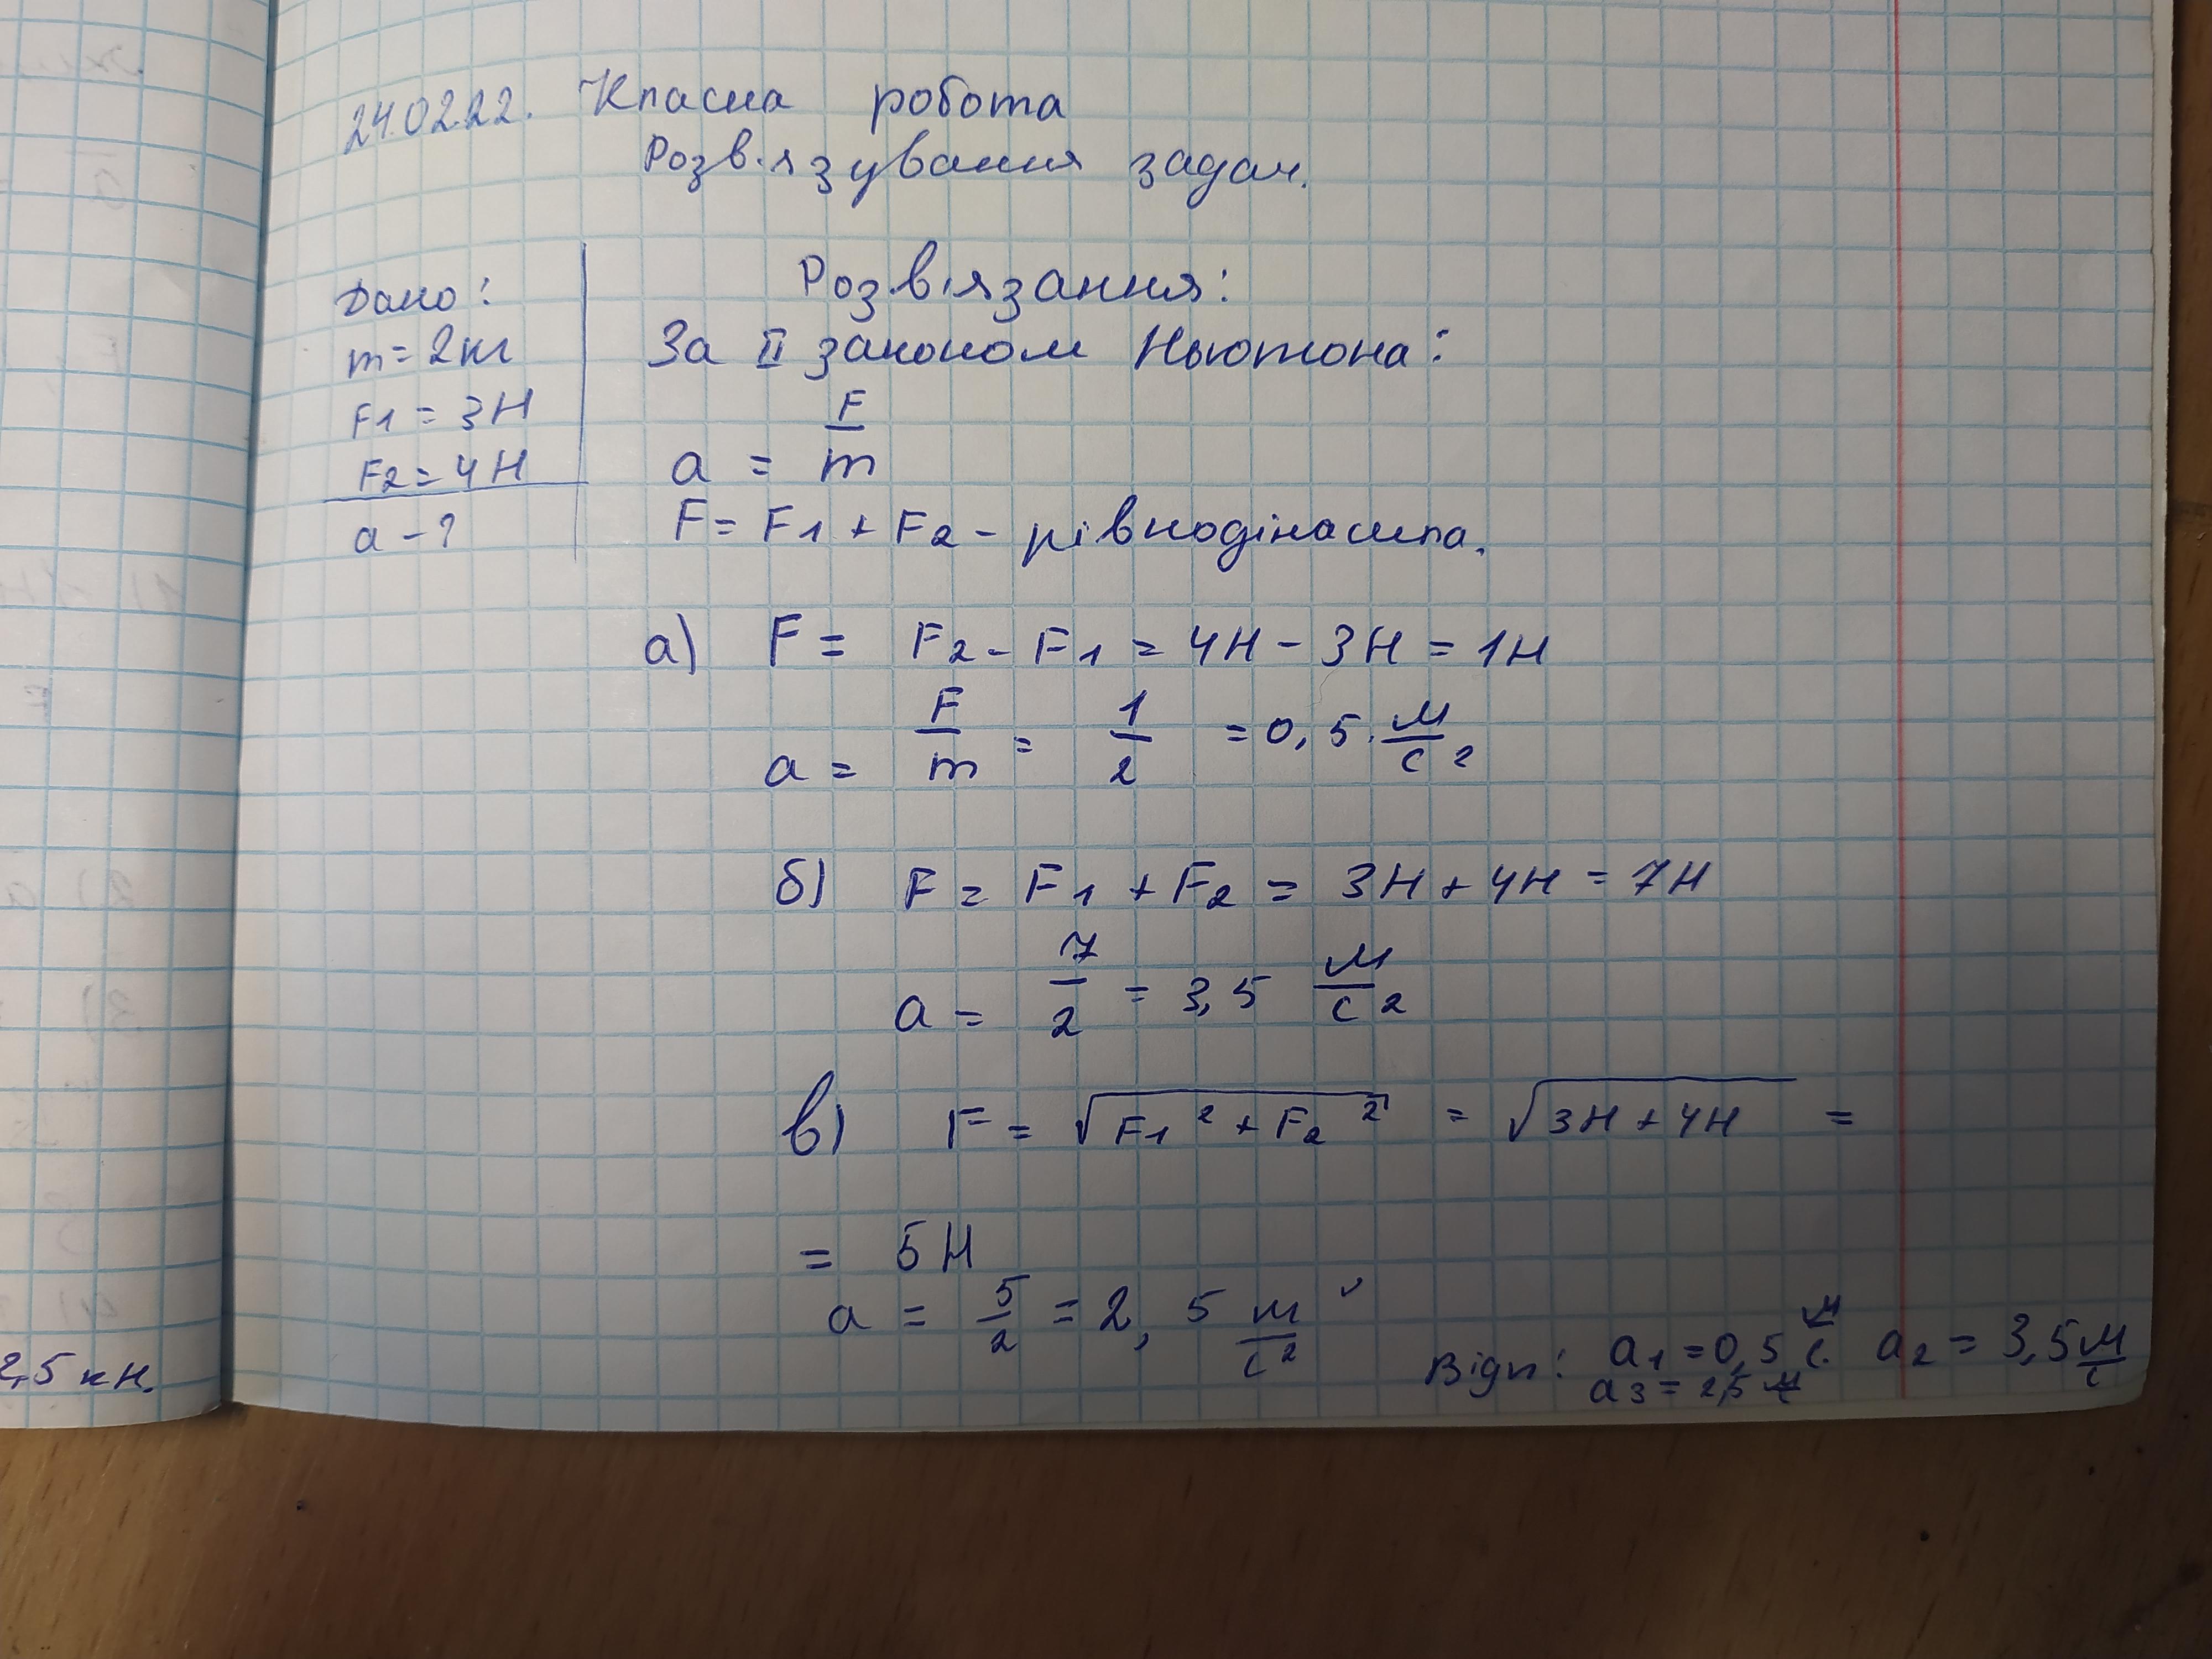 24.02.22. Класна робота
Розв'язування задач.
Дано:
m = 2кг
F1 = 3Н
F2 = 4Н
a - ?
Розв'язання:
За II законом Ньютона:
a = F/m
F = F1 + F2 - рівнодійна сила.
а) F = F2 - F1 = 4Н - 3Н = 1Н
a = F/m = 1/2 = 0,5 м/с2
б) F = F1 + F2 = 3Н + 4Н = 7Н
a = 7/2 = 3,5 м/с2
в) F = √F1² + F2² = √3Н + 4Н =
= 5Н
a = 5/2 = 2,5 м/с²
Відп: a1 = 0,5 м/с. a2 = 3,5 м/с
a3 = 2,5 м/с
2,5 кН.